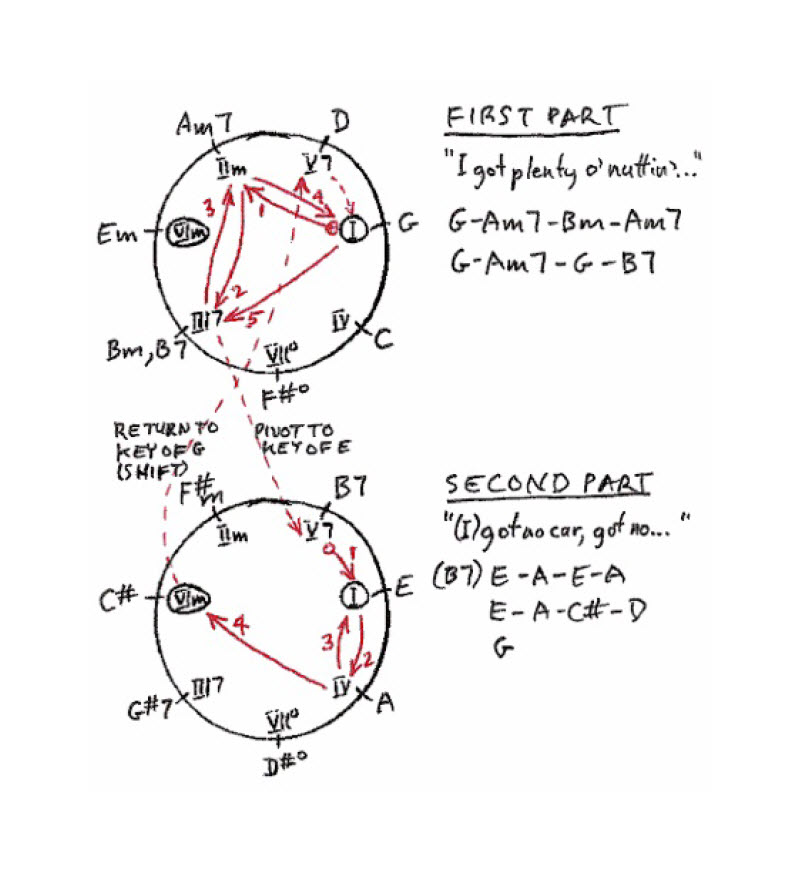 Am7
D
FIRST PART
IIm
V7
"I got plenty o' nuttin'..."
3
1
4
Em
VIm
I
G
G-Am7-Bm-Am7
G-Am7-G-B7
2
III7
5
IV
Bm, B7
VII°
C
F#°
RETURN TO
KEY OF G
(SHIFT)
PIVOT TO
KEY OF E
F#m
B7
SECOND PART
IIm
V7
"(I) got no car, got no..."
0
1
(B7) E-A-E-A
C#
VIm
I
E
E-A-C#-D
4
3
2
G
G#7
III7
IV
A
VII°
D#°